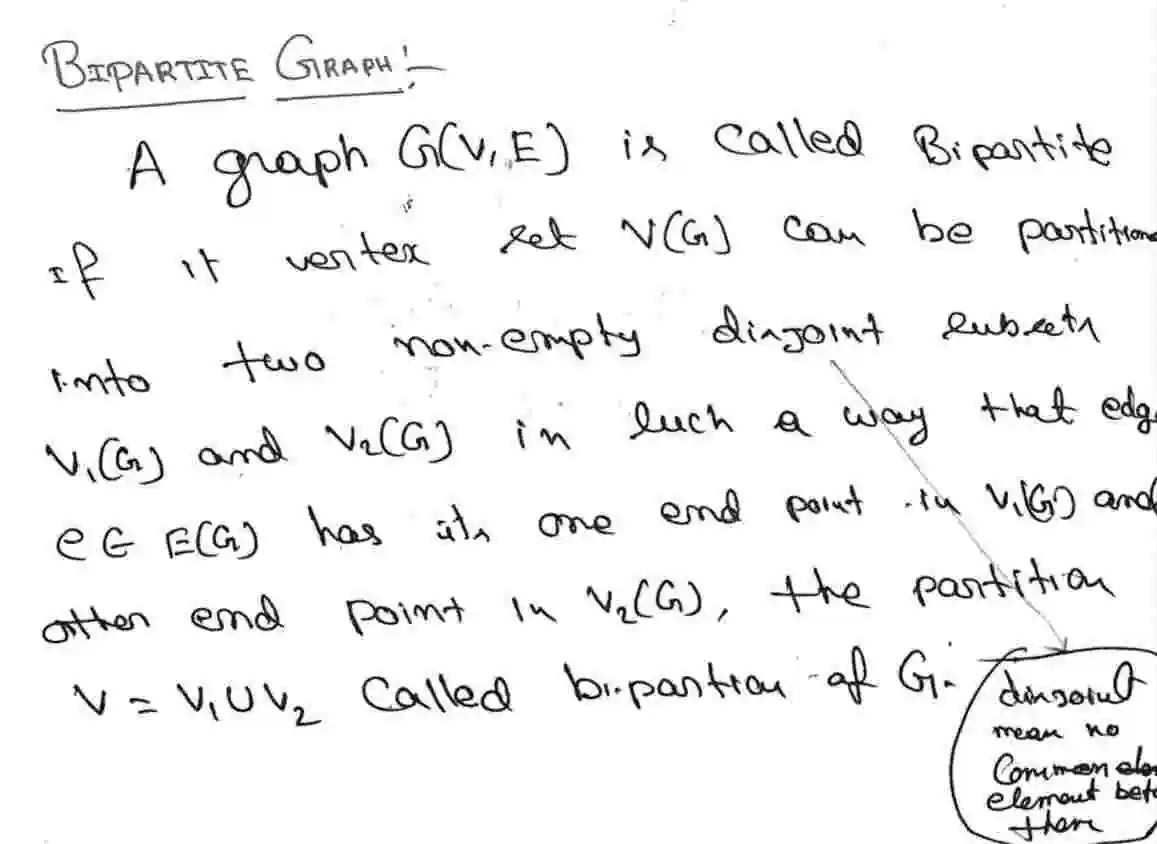 BIPARTITE GRAPH:-
A graph G(V, E) is called Bipartite
if it vertex set V(G) can be partitione
into two non-empty disjoint subsets
V₁(G) and V₂(G) in such a way that edg
e ∈ E(G) has its one end point in V₁(G) and
other end point in V₂(G), the partition
V = V₁ ∪ V₂ called bi-partion of G.
disjoint
mean no
Common ele
element bet
them